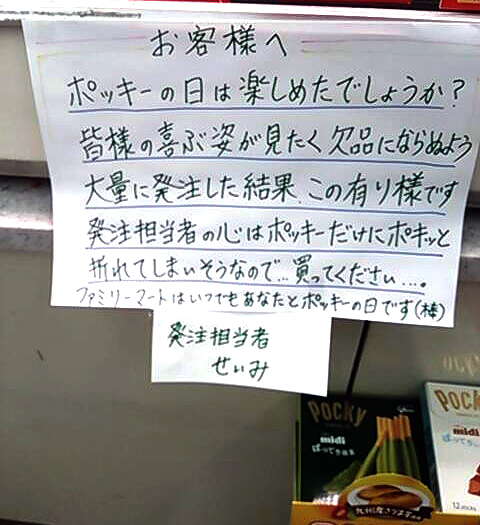 お客様へ
ポッキーの日は楽しめたでしょうか?
皆様の喜ぶ姿が見たく欠品にならぬよう
大量に発注した結果、この有り様です
発注担当者の心はポッキーだけにポキッと
折れてしまいそうなので…買ってください…。
ファミリーマートはいつでもあなたとポッキーの日です(棒)
発注担当者
せいみ
POCKY
midi
POCKY
midi
九州産さつま芋
12